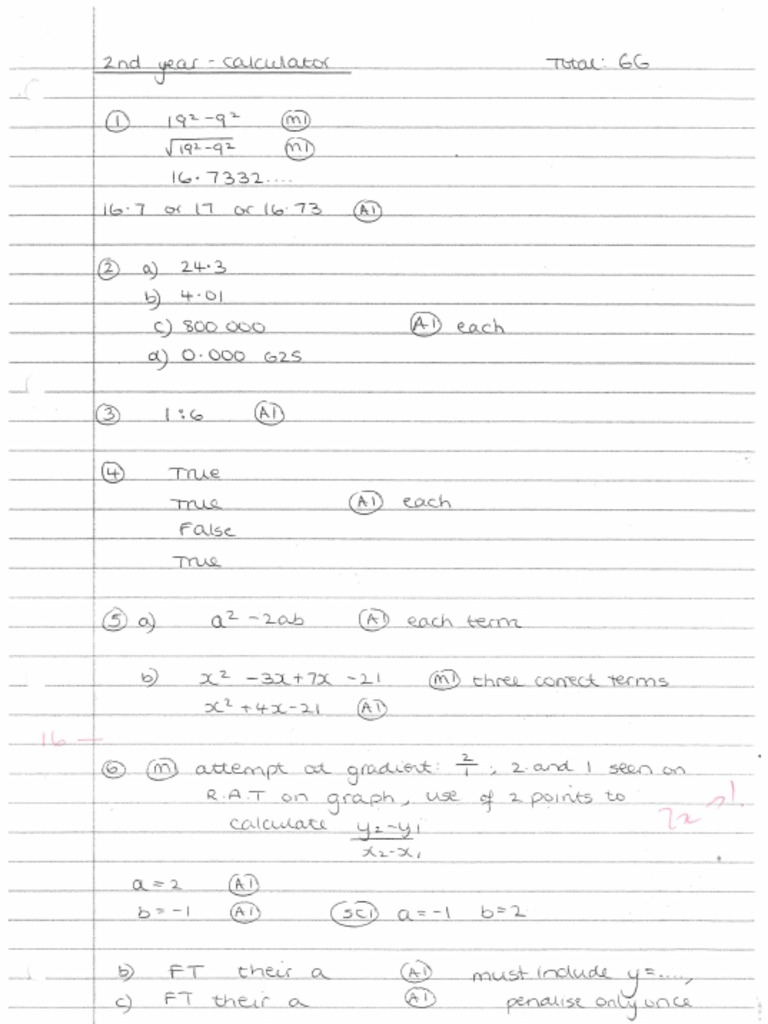 2nd year - calculator Total: 66
① 19² - 9² (M1)
√19² - 9² (M1)
16.7332....
16.7 or 17 or 16.73 (A1)
② a) 24.3
b) 4.01
c) 800 000 (A1) each
d) 0.000 625
③ 1:6 (A1)
④ True
True (A1) each
False
True
⑤ a) a² - 2ab (A1) each term
b) x² - 3x + 7x - 21 (M1) three correct terms
x² + 4x - 21 (A1)
16
⑥ (M1) attempt at gradient: 2/1, 2 and 1 seen on
R.A.T on graph, use of 2 points to
calculate y₂-y₁
x₂-x₁
a = 2 (A1)
b = -1 (A1) (SC1) a = -1 b = 2
b) FT their a (A1) must include y=....,
c) FT their a (A1) penalise only once